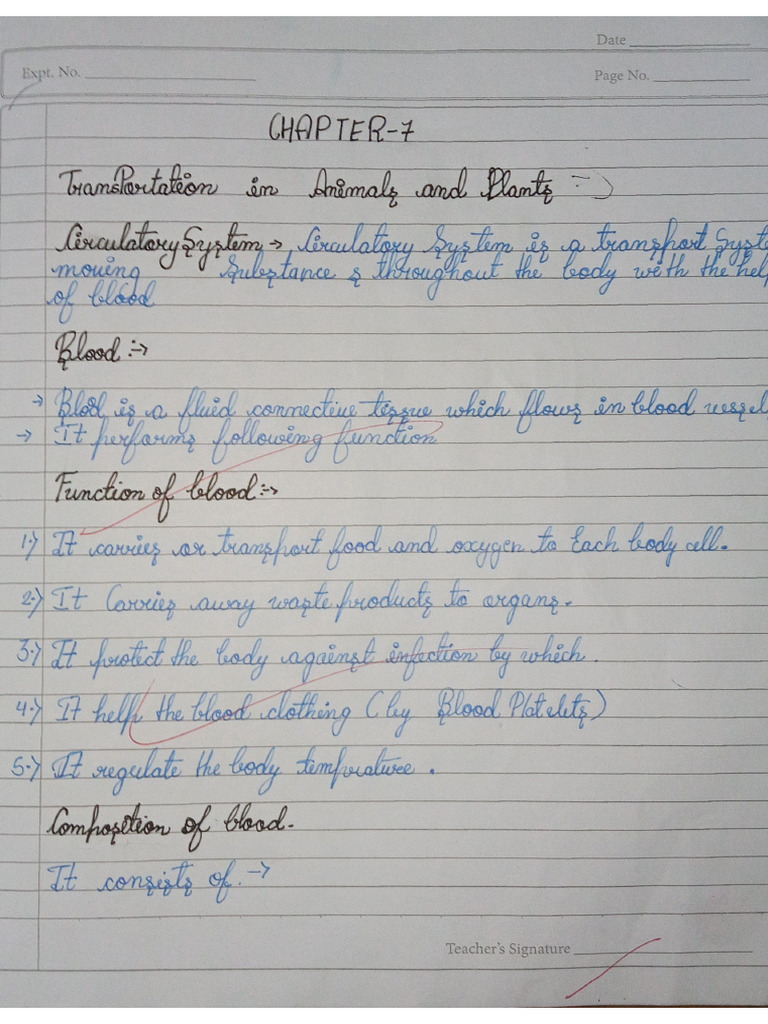 Date
Expt. No.
Page No.
CHAPTER-7
TransPortation in Animals and Plants :-)
Circulatory System → Circulatory System is a transport Syste
moving Substance s throughout the body with the help
of blood
Blood :→
→ Blod is a fluid connective tissue which flows in blood vessel,
→ It performs following function
Function of blood :→
1.) It carries or transport food and oxygen to Each body cell.
2.) It Carries away waste products to organs.
3.) It protect the body against infection by which.
4.) It help the blood clothing (by Blood Platelets)
5.) It regulate the body temprature.
Composition of blood.
It consists of. →
Teacher's Signature